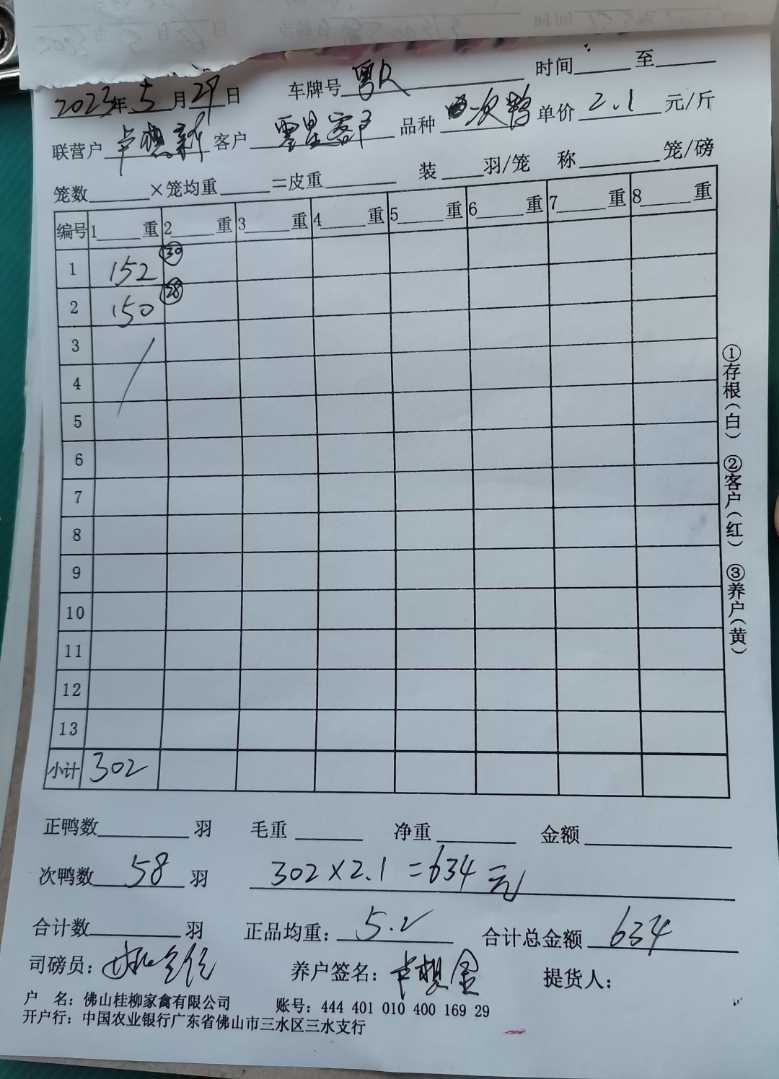 2023年5月29日 车牌号 时间 至
联营户 卢想新 客户 零星客户 品种 次鸭 单价 2.1 元/斤
笼数 ×笼均重 =皮重 装 羽/笼 称 笼/磅
编号 1 重 2 重 3 重 4 重 5 重 6 重 7 重 8 重
1 152 30
2 150 28
3
4
5
6
7
8
9
10
11
12
13
小计 302
①存根(白) ②客户(红) ③养户(黄)
正鸭数 羽 毛重 净重 金额
次鸭数 58 羽 302×2.1=634元
合计数 羽 正品均重: 5.2 合计总金额 634
司磅员: 养户签名: 卢想金 提货人:
户 名: 佛山桂柳家禽有限公司 账号: 444 401 010 400 169 29
开户行: 中国农业银行广东省佛山市三水区三水支行